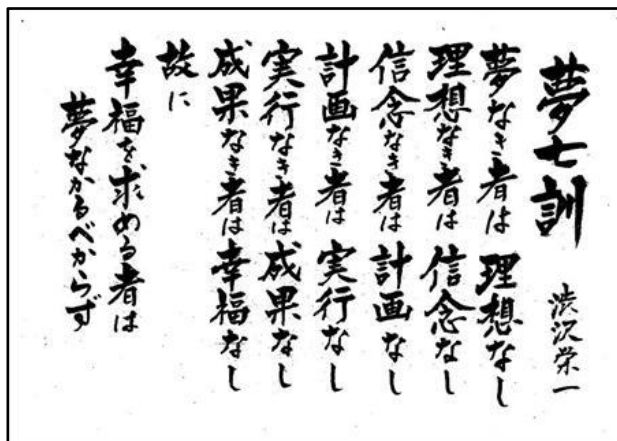 夢七訓 渋沢栄一
夢なき者は 理想なし
理想なき者は 信念なし
信念なき者は 計画なし
計画なき者は 実行なし
実行なき者は 成果なし
成果なき者は 幸福なし
故に
幸福を求める者は
夢なかるべからず